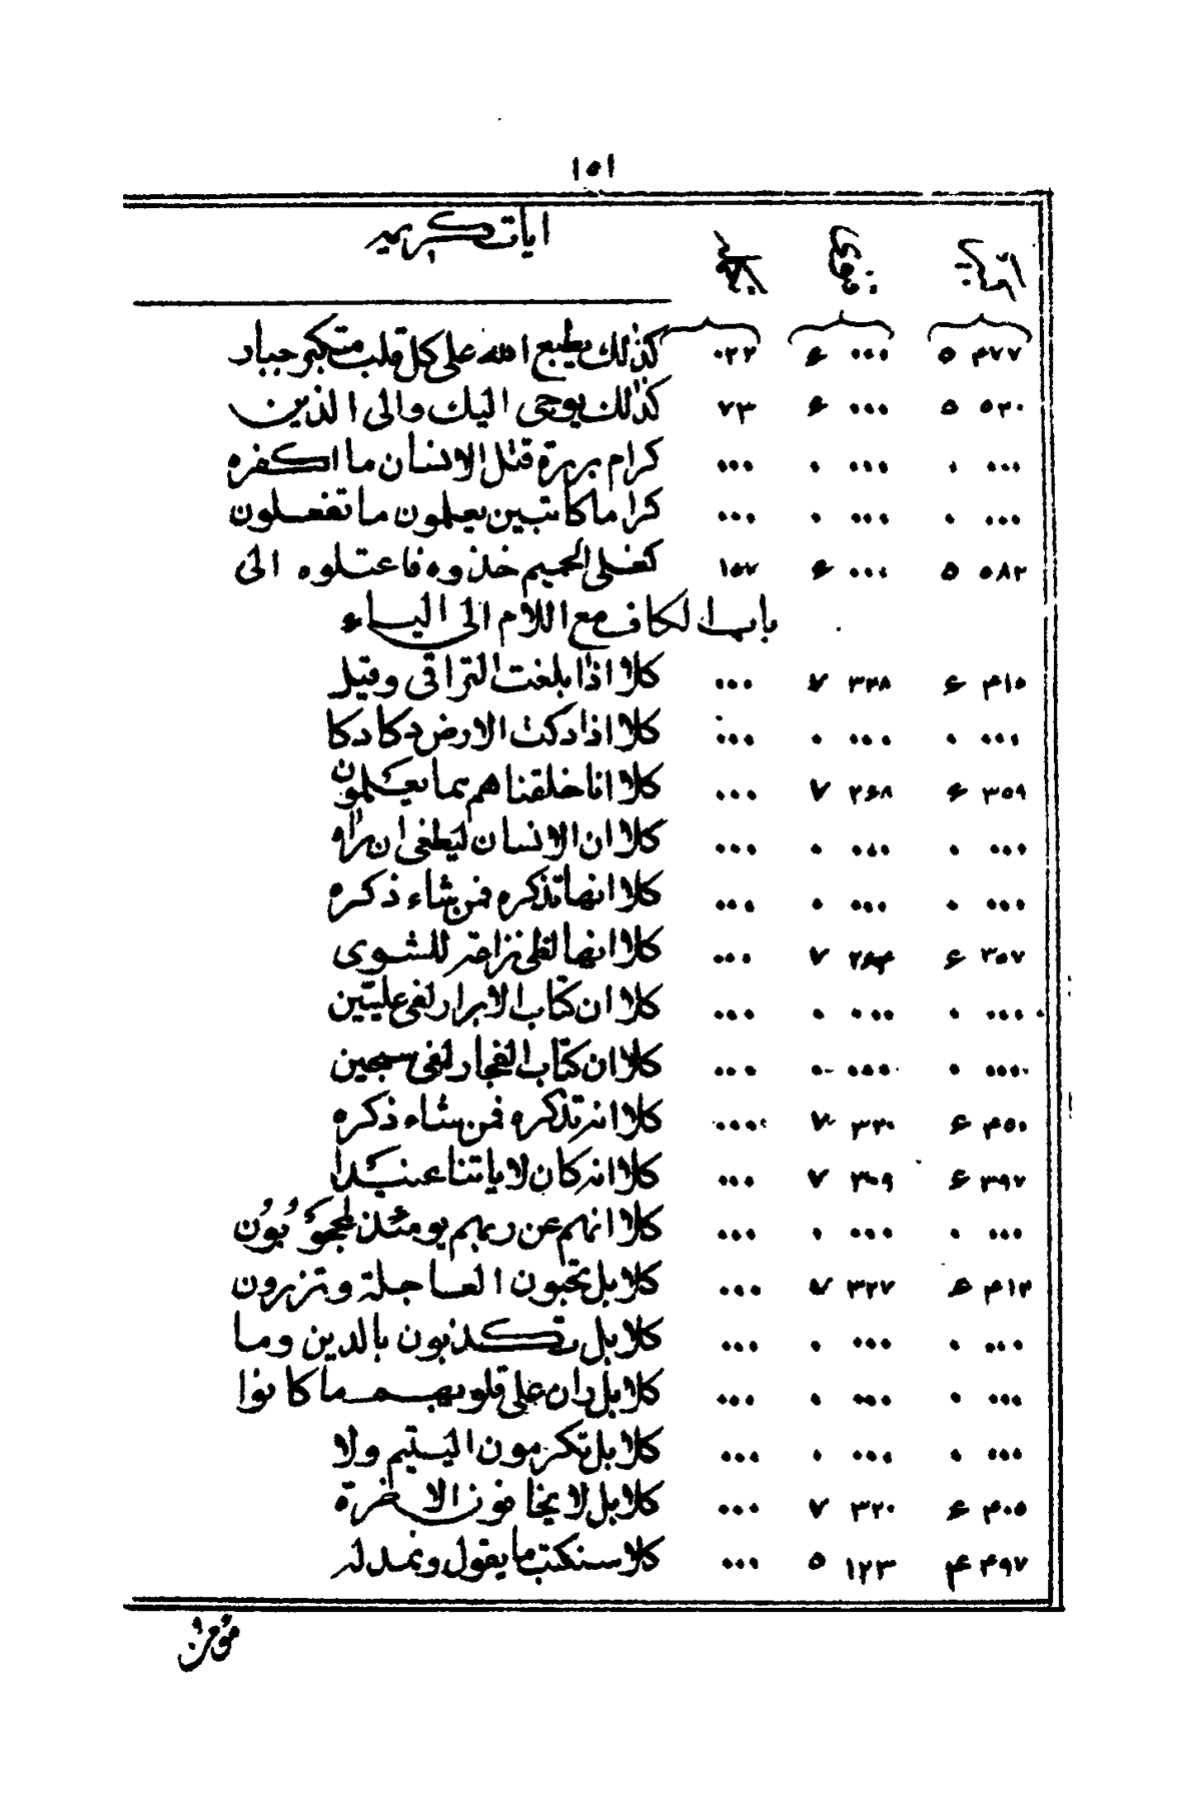 ١٥١
ايات كريمه
٤٧٧ ٥ ٠٠٠ ٤ ٠٢٢ كذلك يطبع الله على كل قلب متكبر جبار
٥٢٠ ٥ ٠٠٠ ٤ ٧٣ كذلك يوحى اليك والى الذين
٠٠٠ ٠ ٠٠٠ ٠ ٠٠٠ كرام بررة قتل الانسان ما اكفره
٠٠٠ ٠ ٠٠٠ ٠ ٠٠٠ كراما كاتبين يعلمون ما تفعلون
٥٨٢ ٥ ٠٠٠ ٤ ١٥٧ كغلى الحميم خذوه فاعتلوه الى
باب الكاف مع اللام الى الياء
٤١٥ ٤ ٣٢٨ ٧ ٠٠٠ كلا اذا بلغت التراقى وقيل
٠٠٠ ٠ ٠٠٠ ٠ ٠٠٠ كلا اذا دكت الارض دكا دكا
٣٥٩ ٤ ٢٦٨ ٧ ٠٠٠ كلا انا خلقناهم مما يعلمون
٠٠٠ ٠ ٠٠٠ ٠ ٠٠٠ كلا ان الانسان ليطغى ان راه
٠٠٠ ٠ ٠٠٠ ٠ ٠٠٠ كلا انها تذكره فمن شاء ذكره
٣٥٧ ٤ ٧ ٠٠٠ كلا انها لظى نزاعة للشوى
٠٠٠ ٠ ٠٠٠ ٠ ٠٠٠ كلا ان كتاب الابرار لفى عليين
٠٠٠ ٠ ٠٠٠ ٠ ٠٠٠ كلا ان كتاب الفجار لفى سجين
٤٥٠ ٤ ٣٢٠ ٧ ٠٠٠ كلا انه تذكره فمن شاء ذكره
٣٩٧ ٤ ٣٠٩ ٧ ٠٠٠ كلا انه كان لاياتنا عنيدا
٠٠٠ ٠ ٠٠٠ ٠ ٠٠٠ كلا انهم عن ربهم يومئذ لمحجوبون
٤١٢ ٤ ٣٢٧ ٧ ٠٠٠ كلا بل تحبون العاجلة وتذرون
٠٠٠ ٠ ٠٠٠ ٠ ٠٠٠ كلا بل تكذبون بالدين وما
٠٠٠ ٠ ٠٠٠ ٠ ٠٠٠ كلا بل ران على قلوبهم ما كانوا
٠٠٠ ٠ ٠٠٠ ٠ ٠٠٠ كلا بل تكرمون اليتيم ولا
٤٠٥ ٤ ٣٢٠ ٧ ٠٠٠ كلا بل لا يخافون الاخرة
٤٩٧ ٤ ١٢٣ ٥ ٠٠٠ كلا سنكتب ما يقول ونمد له